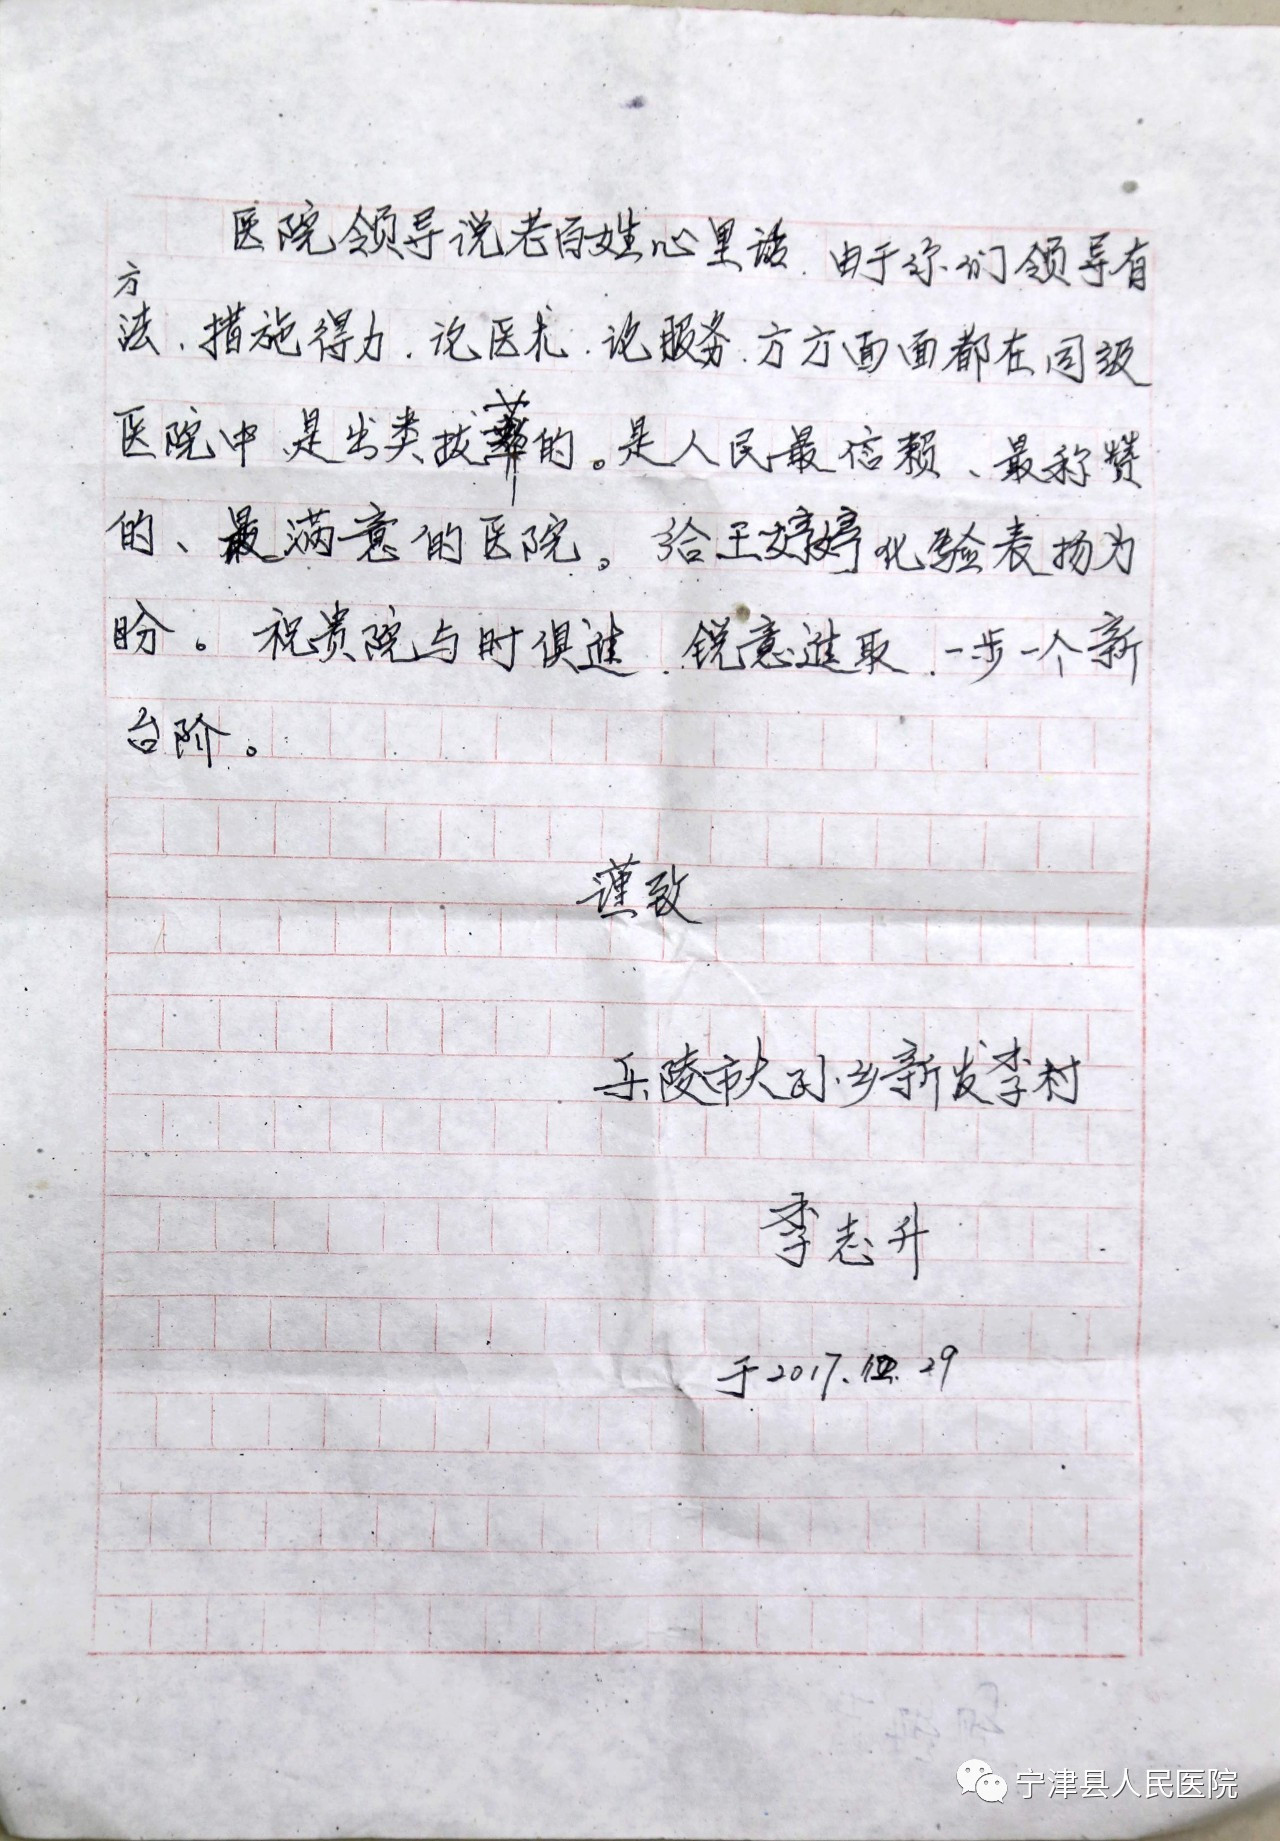 医院领导说老百姓心里话.由于你们领导有
方
法、措施得力.论医术.论服务.方方面面都在同级
医院中是出类拔萃的。是人民最信赖、最称赞
的、最满意的医院。给王婷婷化验表扬为
盼。祝贵院与时俱进.锐意进取.一步一个新
台阶。
谨致
乐陵市大孙乡新发李村
李志升
于2017.12.29
宁津县人民医院